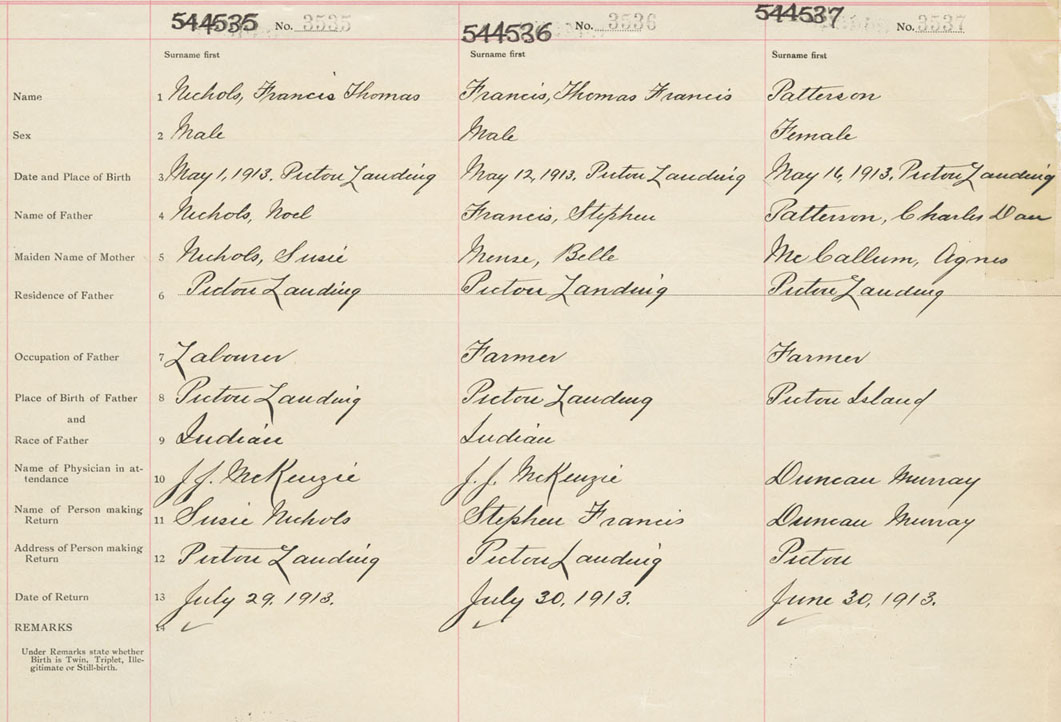 544535 No. 3535 544536 No. 3536 544537 No. 3537
Surname first Surname first Surname first
Name 1 Nichols, Francis Thomas Francis, Thomas Francis Patterson
Sex 2 Male Male Female
Date and Place of Birth 3 May 1, 1913. Pictou Landing May 12, 1913, Pictou Landing May 16, 1913, Pictou Landing
Name of Father 4 Nichols, Noel Francis, Stephen Patterson, Charles Dan
Maiden Name of Mother 5 Nichols, Susie Belle McCallum, Agnes
Residence of Father 6 Pictou Landing Pictou Landing Pictou Landing
Occupation of Father 7 Labourer Farmer Farmer
Place of Birth of Father 8 Pictou Landing Pictou Landing Pictou Island
and
Race of Father 9 Indian Indian
Name of Physician in at-
tendance 10 J. J. McKenzie J. J. McKenzie Duncan Murray
Name of Person making
Return 11 Susie Nichols Stephen Francis Duncan Murray
Address of Person making
Return 12 Pictou Landing Pictou Landing Pictou
Date of Return 13 July 29, 1913. July 30, 1913. June 30, 1913.
REMARKS 14
Under Remarks state whether
Birth is Twin, Triplet, Ille-
gitimate or Still-birth.